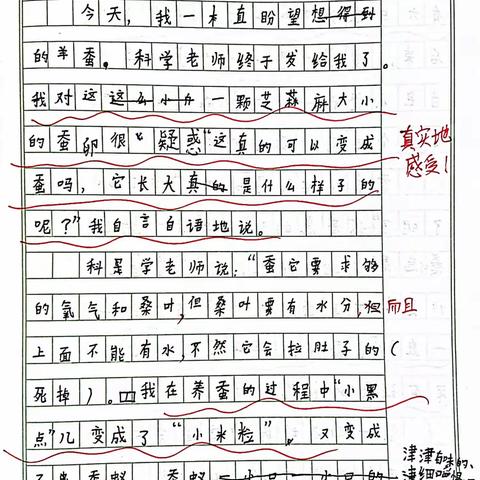 今天,我一本直盼望想得到
的羊蚕。科学老师终于发给我了。
我对这这么小小一颗芝蔴麻大小
的蚕卵很“疑惑“这真的可以变成
蚕吗,它长大真的是什么样子的
呢?”我自言自语地说。
真实地
感受!
科是学老师说:“蚕它要求够
的氧气和桑叶,但桑叶要有水分,但而且
上面不能有水,不然它会拉肚子的(
死掉)。我在养蚕的过程中“小黑
点”儿变成了“小米粒”。又变成
津津有味的、